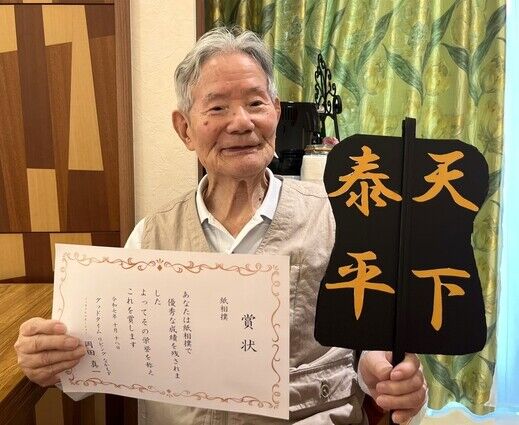 賞状
紙相撲
あなたは紙相撲で
優秀な成績を残されま
した
よってその栄誉を称え
これを賞します
令和七年 十月 十八日
グッドタイム リビング
岡田 真
天下
泰平